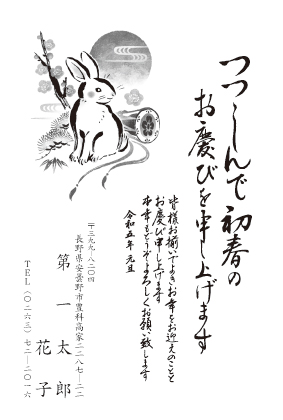 つつしんで初春の
お慶びを申し上げます
皆様お揃いでよきお年をお迎えのことと
お慶び申し上げます
本年もどうぞよろしくお願い致します
令和五年 元旦
〒三九九-八二〇四
長野県安曇野市豊科高家二二八七-二二
第一 太郎
花子
TEL(〇二六三)七二-二〇一六